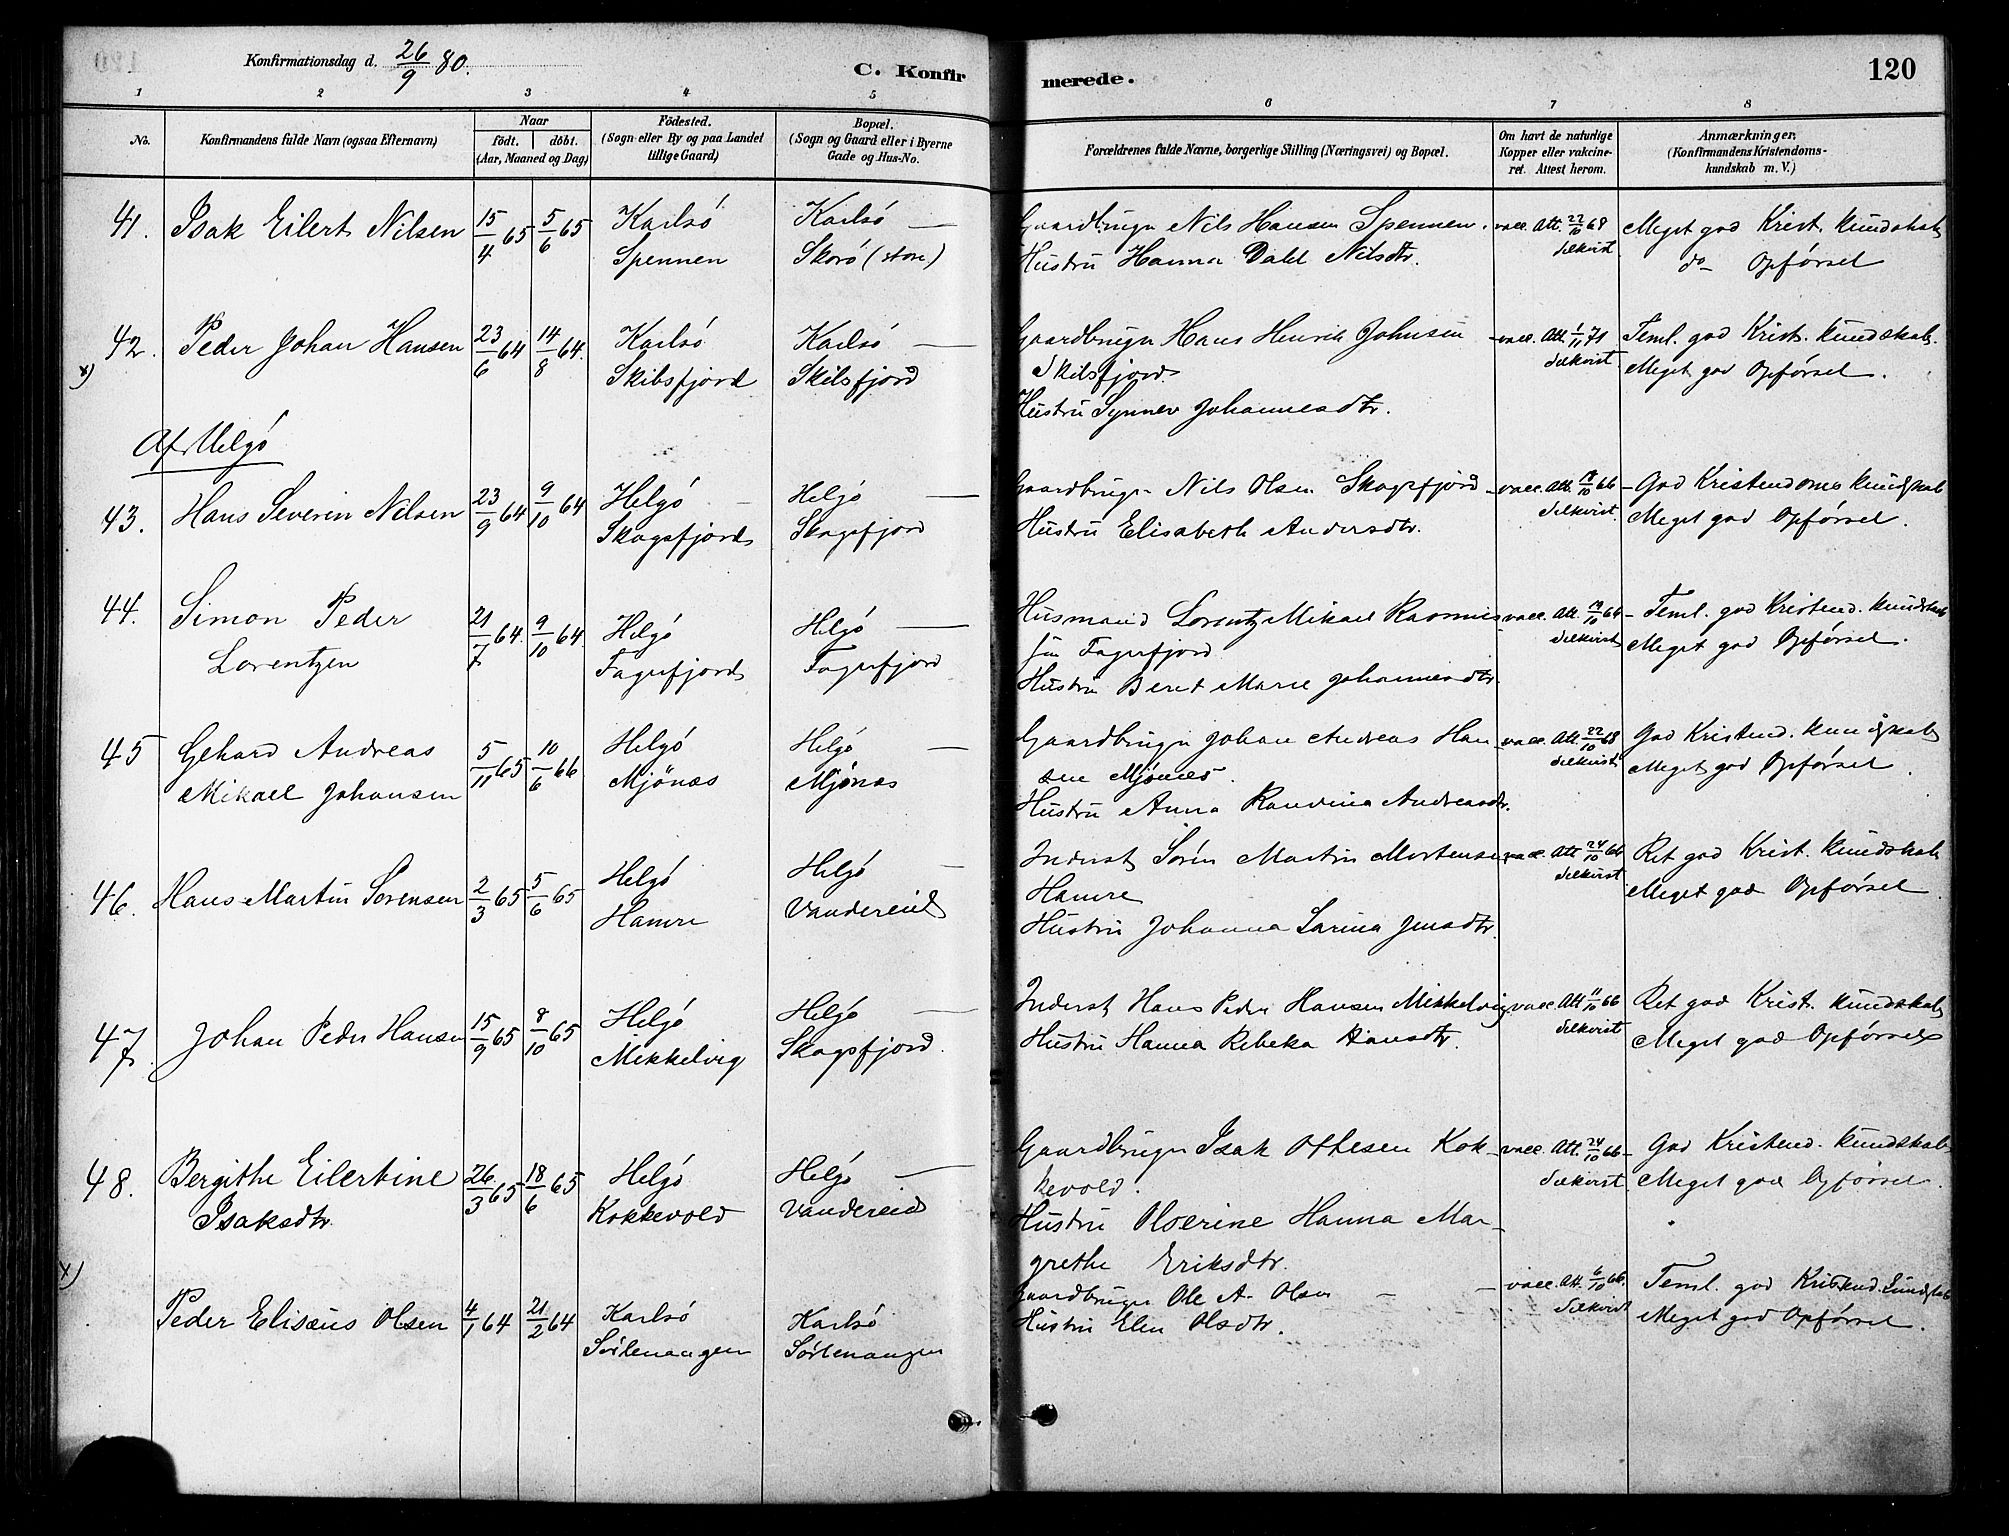 Konfirmationsdag d. 26/9 80.
C. Konfirmerede.
120
1 2 3 4 5 6 7 8
No.
Konfirmandens fulde Navn (ogsaa Efternavn)
Naar
födt. döbt.
(Aar, Maaned og Dag)
Födested.
(Sogn eller By og paa Landet
tillige Gaard)
Bopæl.
(Sogn og Gaard eller i Byerne
Gade og Hus-No.
Forældrenes fulde Navne, borgerlige Stilling (Næringsvei) og Bopæl.
Om havt de naturlige
Kopper eller vakcine-
ret. Attest herom.
Anmærkninger.
(Konfirmandens Kristendoms-
kundskab m. V.)
41. Isak Eilert Nilsen 15/4 65 5/6 65 Karlsö Karlsö — Gaardbruger Nils Hansen Spennen. vacc. Att. 22/10 68 Meget god Krist. kundskab
Spennen Skorö (store) Hustru Hanna Dahl Nilsdtr. Selkvist do Opförsel
42. Peder Johan Hansen 23/6 64 14/8 64. Karlsö Karlsö — Gaardbruger Hans Henrik Johnsen vacc. Att. 1/11 71 Teml. god Krist. kundskab.
x) Skibsfjord Skibsfjord Skibsfjord Selkvist Meget god Opförsel.
Hustru Synnev Johannesdtr.
Af Helgö
43. Hans Severin Nilsen 23/9 64 9/10 64 Helgö Helgö — Gaardbruger Nils Olsen Skogsfjord vacc. Att. 19/10 66 God Kristendoms kundskab
Skogsfjord Skogsfjord Hustru Elisabeth Andersdtr. Selkvist Meget god Opförsel.
44. Simon Peder 21/7 64. 9/10 64. Helgö Helgö — Husmand Lorentz Mikael Rasmus- vacc. Att. 19/10 66 Teml. god Kristend. kundskab
Lorentzen Fagerfjord Fagerfjord sen Fagerfjord Selkvist Meget god Opförsel.
Hustru Beret Marie Johannesdtr.
45 Gehard Andreas 5/11 65 10/6 66 Helgö Helgö — Gaardbruger Johan Andreas Han- vacc. Att. 22/10 68 God Kristend. kundskab
Mikael Johansen Mjönæs Mjönæs sen Mjönes. Selkvist Meget god Opförsel.
Hustru Anna Randina Andreasdtr.
46. Hans Martin Sörensen 2/3 65 5/6 65 Helgö Helgö — Inderst Sören Martin Mortensen vacc. Att 24/10 66 Ret god Krist. kundskab
Hamre Vandereid Hamre Selkvist Meget god Opförsel
Hustru Johanna Sarina Jensdtr.
47. Johan Peder Hansen 15/9 65 8/10 65 Helgö Helgö — Inderst Hans Peder Hansen Mikkelvig vacc. Att 11/10 66 Ret god Krist. kundskab
Mikkelvig Skogsfjord. Hustru Hanna Rebeka Hansdtr. Selkvist Meget god Opförsel
48. Bergithe Eilertine 26/3 65 18/6 65 Helgö Helgö — Gaardbruger Isak Ottesen Kok- vacc. Att. 24/10 66 God Kristend. kundskab
Isaksdtr. Kokkevold Vandereid kevold. Selkvist Meget god Opförsel.
Hustru Olserine Hanna Mar-
grethe Eriksdtr.
x) Peder Elisæus Olsen 4/1 64 21/2 64 Karlsö Karlsö Gaardbruger Ole A. Olsen — vacc. Att. 6/10 66. Teml. god Kristend. kundskab
Sörlenangen Sörlenangen Hustru Elen Olsdtr. Selkvist Meget god Opförsel.